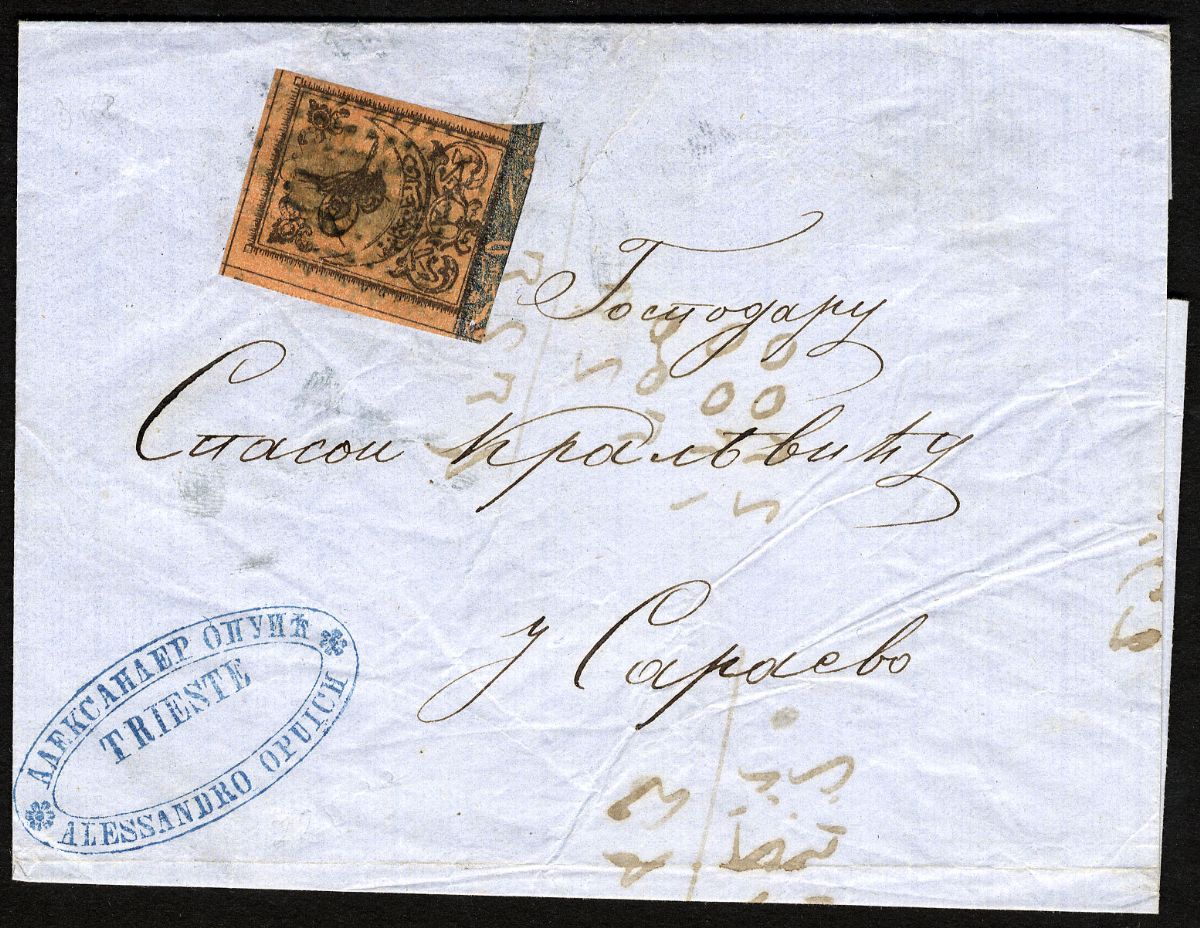 Господару
Спасои Кралѣвићу
у Сараево
АЛЕКСАНДЕР ОПУИЋ
TRIESTE
ALESSANDRO OPUICH